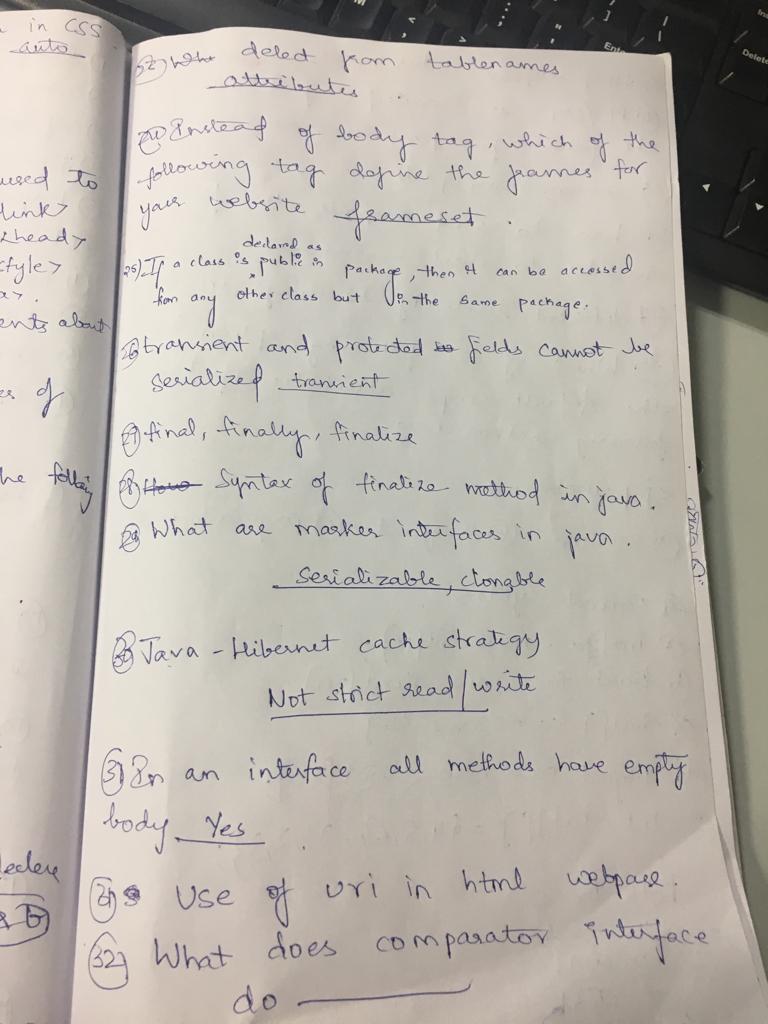 in CSS
auto
used to
link>
<head>
style>
ents about
es of
he following
declare
deled from tablenames
attributes
Instead of body tag, which of the
following tag define the frames for
your website frameset.
25) If a class is declared as public in package, then it can be accessed
from any other class but in the same package.
26) transient and protected fields cannot be
serialized transient
27) final, finally, finalize
28) Syntax of finalize method in java.
29) What are marker interfaces in java.
Serializable, clonable
30) Java - Hibernet cache strategy
Not strict read/write
31) In an interface all methods have empty
body Yes
Use of uri in html webpase.
32) What does comparator interface
do
Insert
Delete
Enter